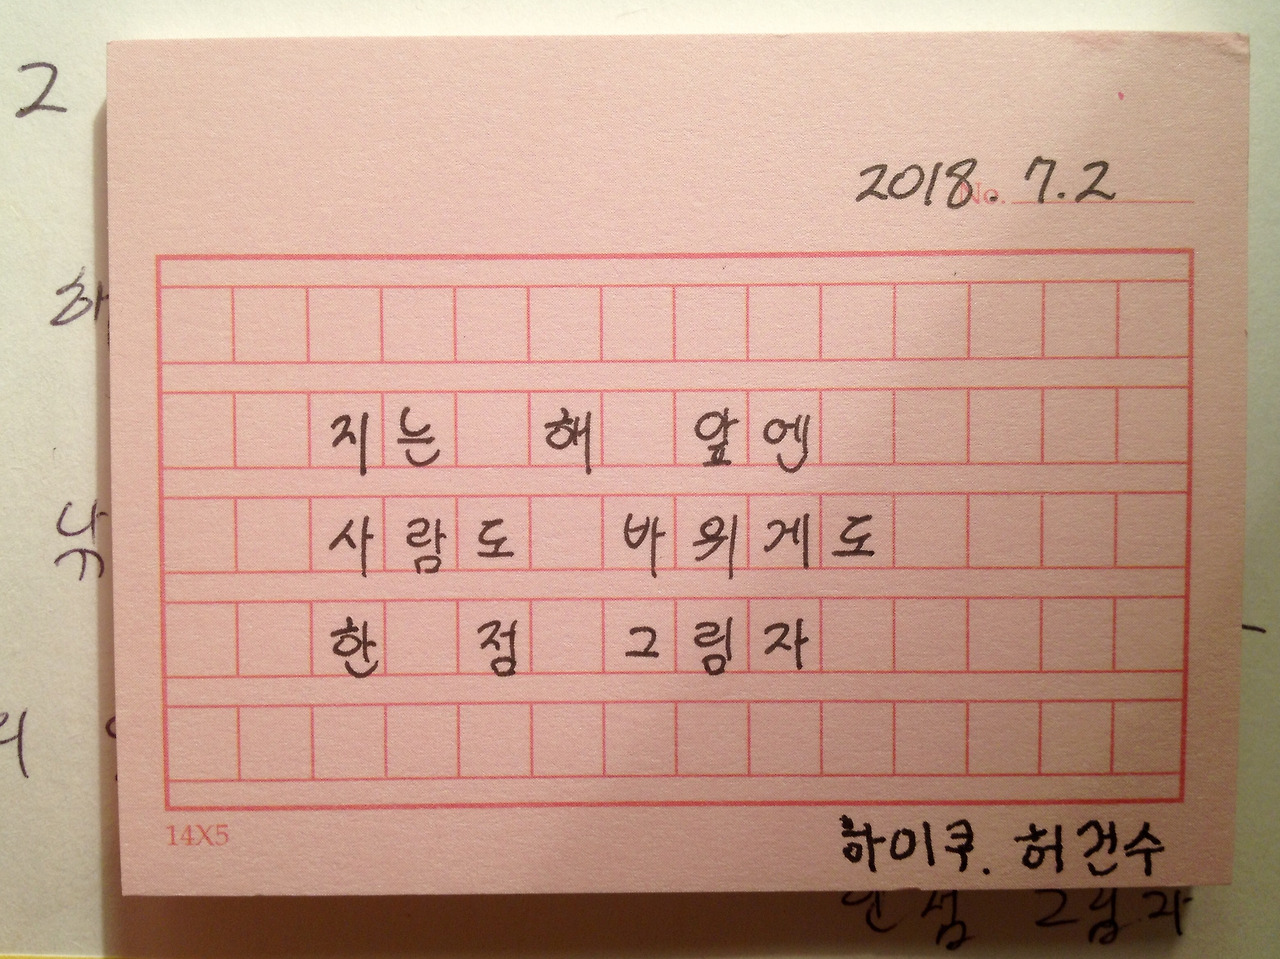 2
2018. 7.2
No.
하
지는 해 앞엔
사람도 바위게도
한 점 그림자
14X5
하이쿠. 허건수
한 점 그림자